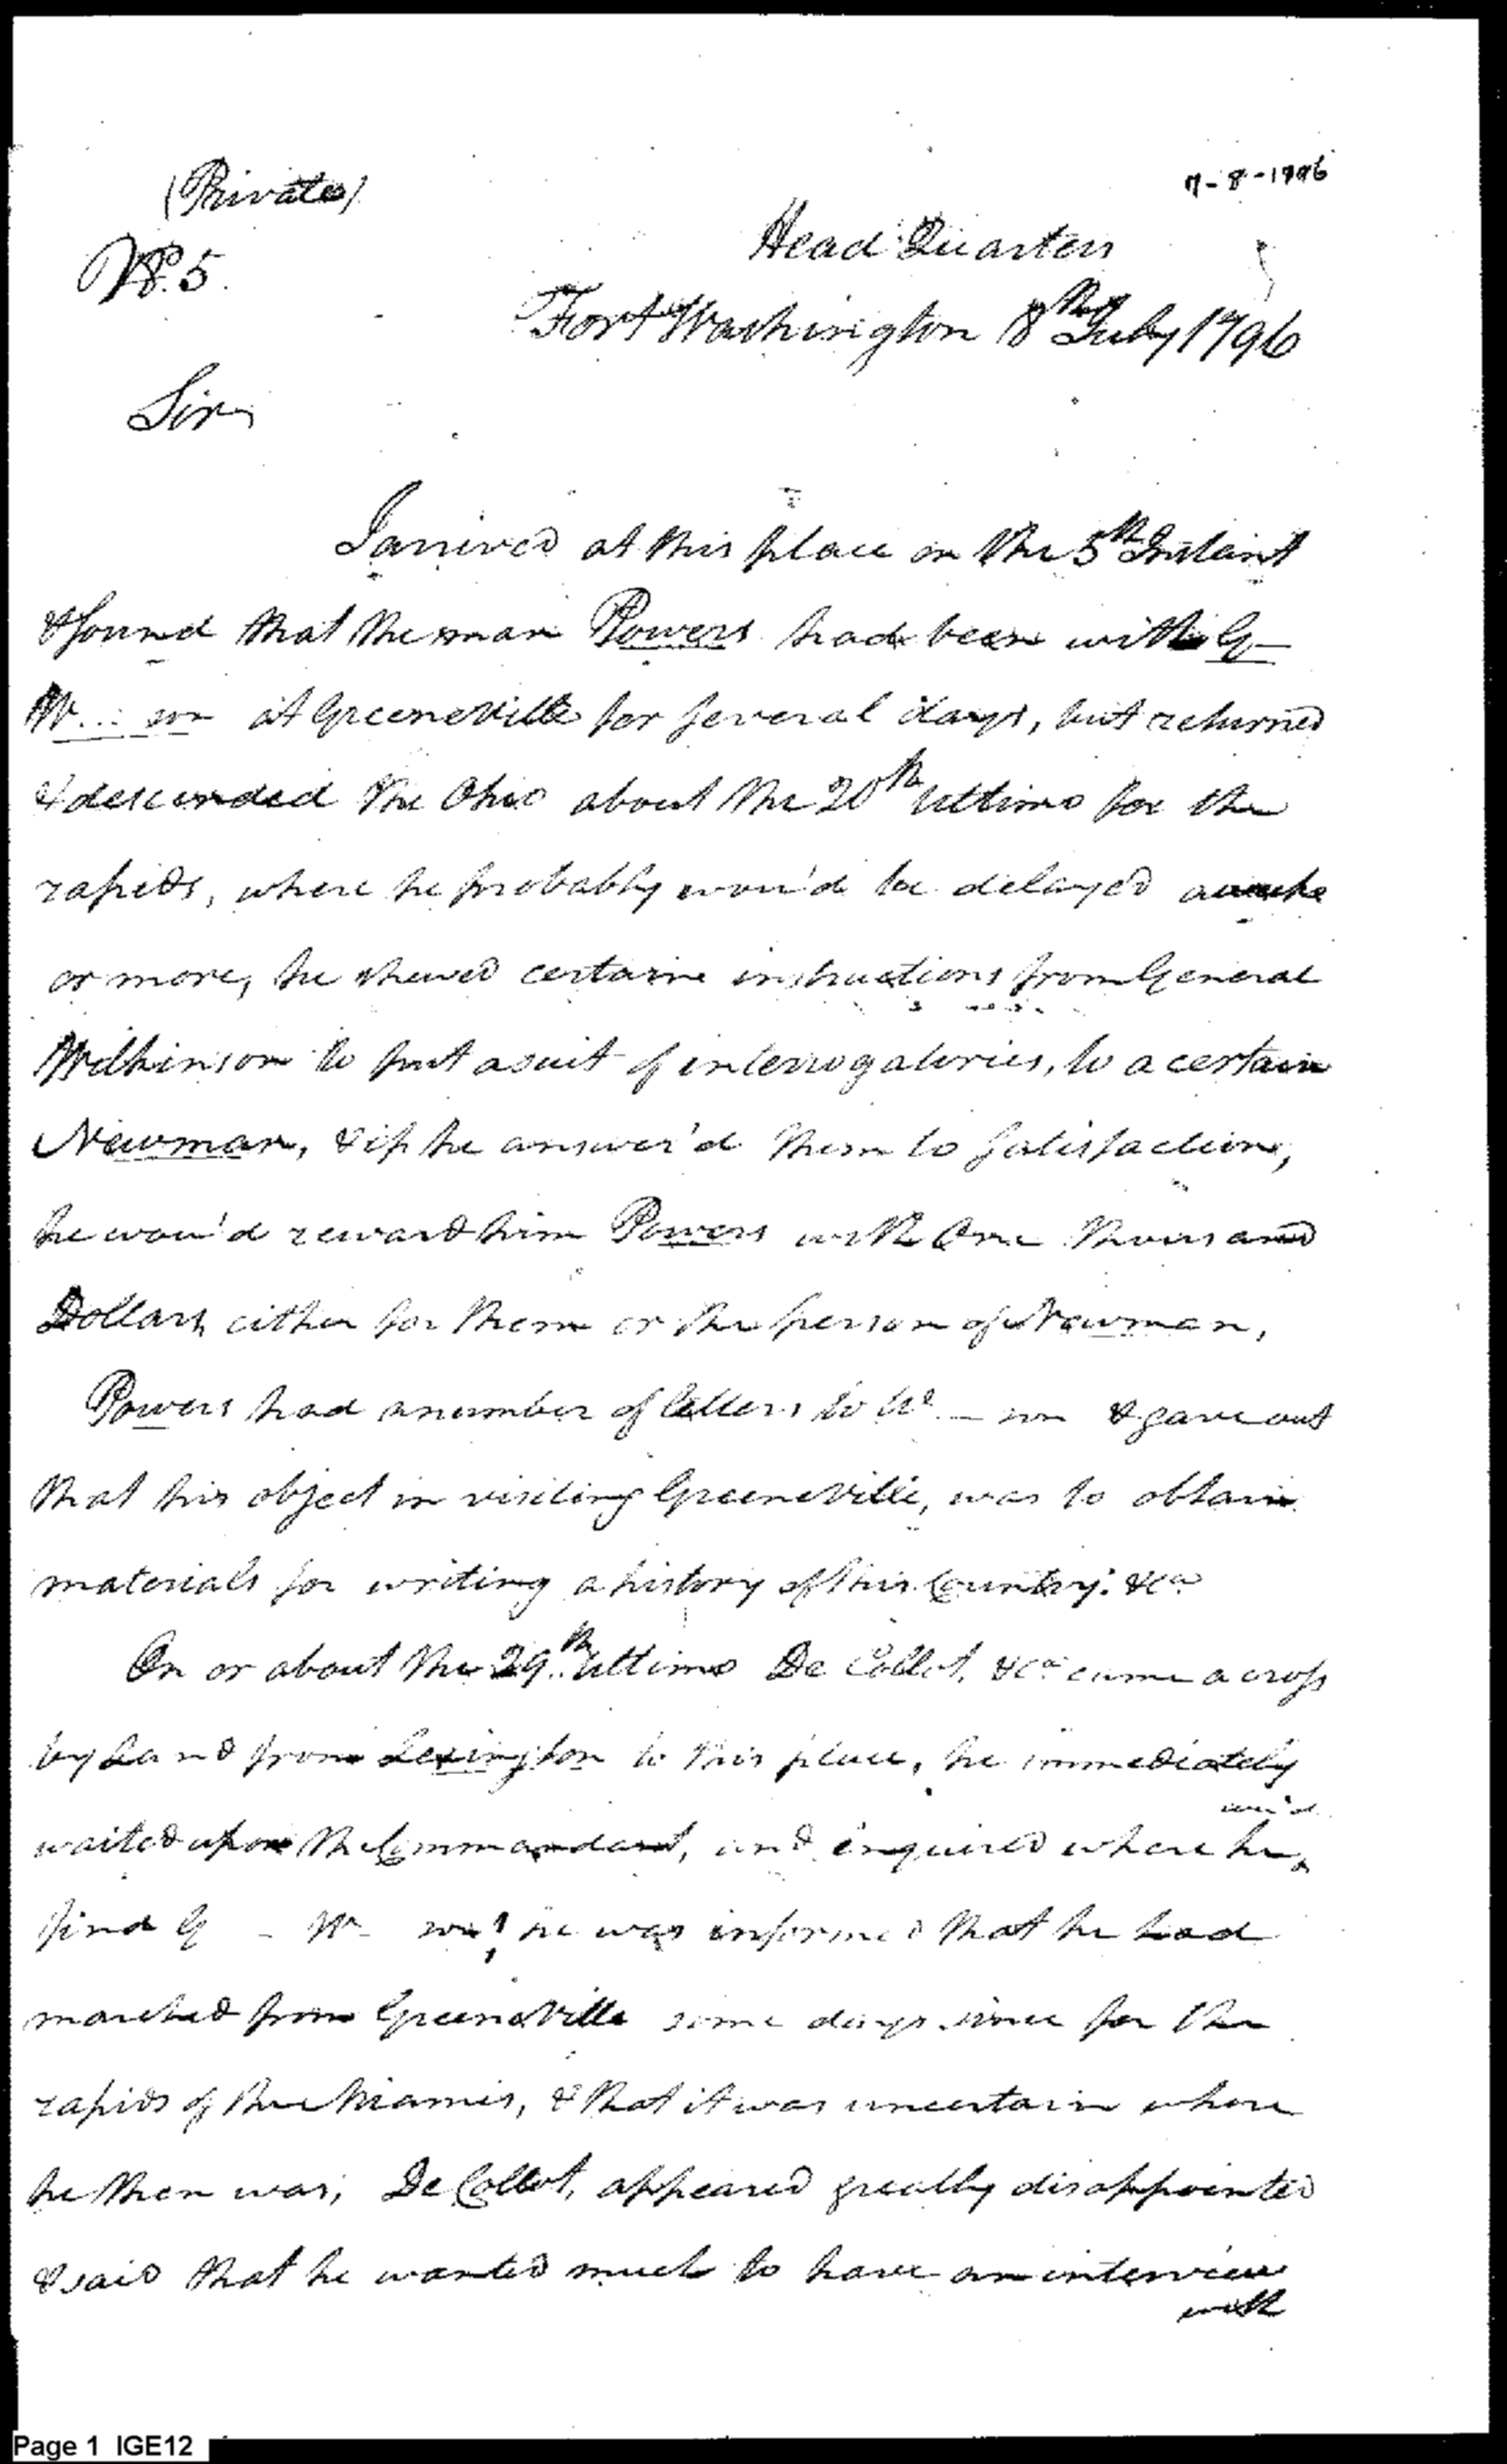 7-8-1796
(Private)
Head Quarters
No. 5.
Fort Washington 8th July 1796
Sir,
I arrived at this place on the 5th Instant
& found that the man Powers had been with G—
W...son at Greeneville for several days, but returned
& descended the Ohio about the 20th Ultimo for the
rapids, where he probably wou'd be delayed a weeke
or more, he shewed certain instructions from General
Wilkinson to put a suit of interrogatories, to a certain
Newman, & if he answer'd them to satisfaction,
he wou'd reward him Powers with One thousand
Dollars, either for them or the person of Newman,
Powers had a number of letters to W — son & gave out
that his object in visiting Greeneville, was to obtain
materials for writing a history of this Country: &ca
On or about the 29th Ultimo De Collot, &ca came across
by land from Lexington to this place, he immediately
waited upon the Commandant, and enquired where he wou'd
find G — W — son! he was informed that he had
marched from Greeneville some days since for the
rapids of the Miamis, & that it was uncertain where
he then was; De Collot, appeared greatly disappointed
& said that he wanted much to have an interview
with
Page 1 IGE12